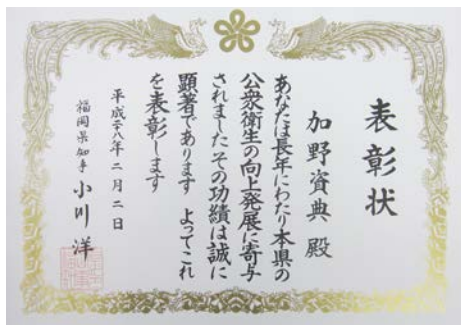 表彰状
加野資典 殿
あなたは長年にわたり本県の
公衆衛生の向上発展に寄与
されましたその功績は誠に
顕著であります よってこれ
を表彰します
平成二十八年二月二日
福岡県知事 小川 洋